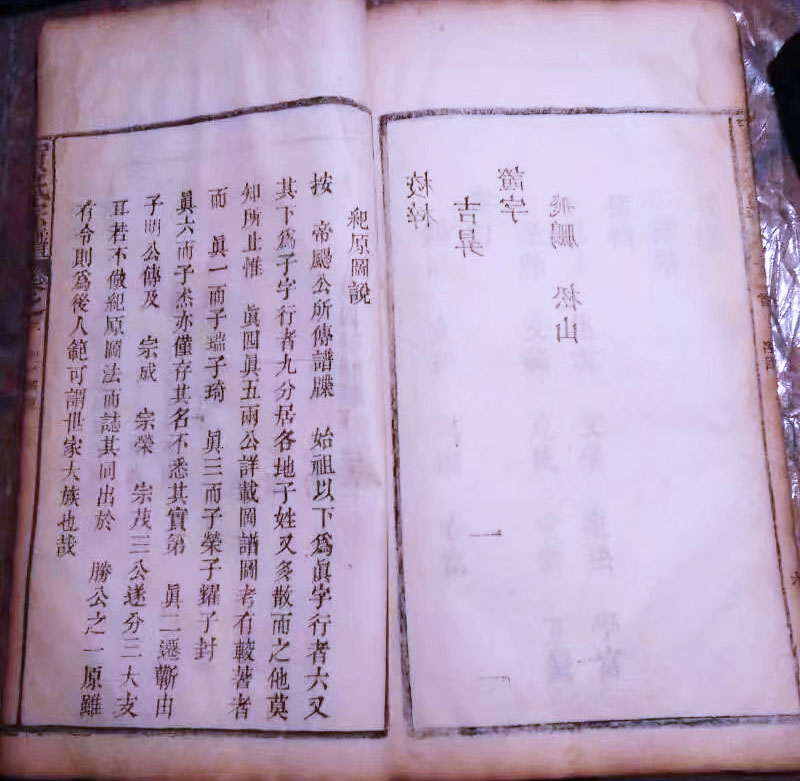 飛鵬 松山
字
吉昇
校梓
紀原圖說
按 帝颺公所傳譜牒 始祖以下爲眞字行者六又
其下爲子字行者九分居各地子姓又多散而之他莫
知所止惟 眞四眞五兩公詳載圖譜圖考有較著者
而 眞一而子瑞子琦 眞三而子榮子耀子封
眞六而子杰亦僅存其名不悉其實第 眞二遷蘄由
子明公傳及 宗成 宗榮 宗茂三公遂分三大支
耳若不倣紀原圖法而誌其同出於 勝公之一原雖
有令則爲後人範可謂世家大族也哉
氏宗譜 卷之